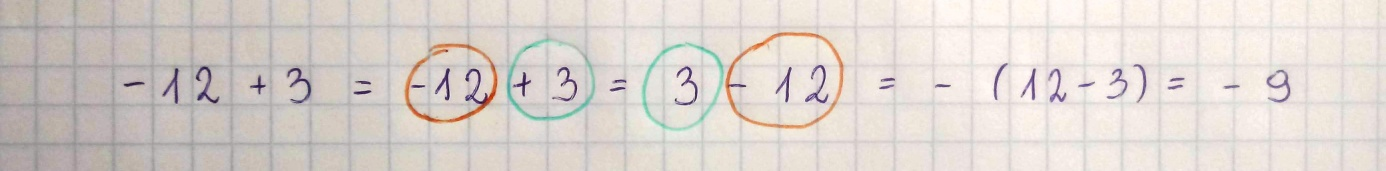 -12 + 3 = -12 + 3 = 3 - 12 = - (12 - 3) = - 9